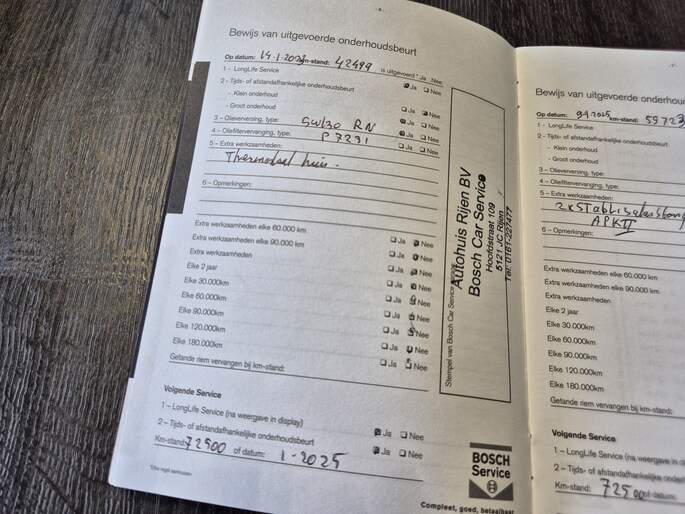 Bewijs van uitgevoerde onderhoudsbeurt
Op datum: km-stand: 42499 is uitgevoerd * Ja Nee
1 – LongLife Service Ja Nee
2 – Tijds- of afstandafhankelijke onderhoudsbeurt
– Klein onderhoud Ja Nee
– Groot onderhoud Ja Nee
3 – Olieverversing, type: 5W30 RN Ja Nee
4 – Oliefiltervervanging, type: P7231 Ja Nee
5 – Extra werkzaamheden:
huis.
6 – Opmerkingen:
Extra werkzaamheden elke 60.000 km Ja Nee
Extra werkzaamheden elke 90.000 km Ja Nee
Extra werkzaamheden Ja Nee
Elke 2 jaar Ja Nee
Elke 30.000km Ja Nee
Elke 60.000km Ja Nee
Elke 90.000km Ja Nee
Elke 120.000km Ja Nee
Elke 180.000km Ja Nee
Getande riem vervangen bij km-stand:
Volgende Service
1 – LongLife Service (na weergave in display) Ja Nee
2 – Tijds- of afstandafhankelijke onderhoudsbeurt Ja Nee
Km-stand: 72500 of datum: 1-2025
Stempel van Bosch Car Service
Autohuis Rijen BV
Bosch Car Service
Hoofdstraat 109
5121 JC Rijen
Tel: 0161-227477
BOSCH
Service
Compleet, goed, betaalbaar
Bewijs van uitgevoerde onderhou
Op datum: km-stand: 59723
1 – LongLife Service
2 – Tijds- of afstandafhankelijke on
– Klein onderhoud
– Groot onderhoud
3 – Olieverversing, type:
4 – Oliefiltervervanging, type:
5 – Extra werkzaamheden:
APK
6 – Opmerkingen:
Extra werkzaamheden elke 60.000 km
Extra werkzaamheden elke 90.000 km
Extra werkzaamheden
Elke 2 jaar
Elke 30.000km
Elke 60.000km
Elke 90.000km
Elke 120.000km
Elke 180.000km
Getande riem vervangen bij km-stand:
Volgende Service
1 – LongLife Service (na weergave in d
2 – Tijds- of afstandafhankelijke onder
Km-stand: of datum: